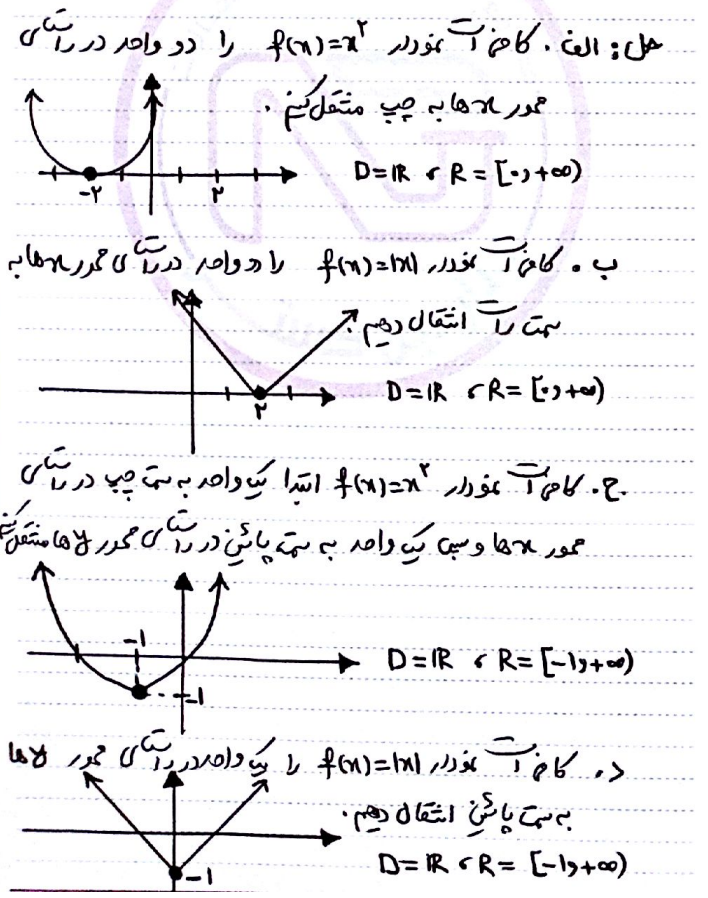 حل: الف. کافی است نمودار f(x)=x² را دو واحد در راستای
محور xها به چپ منتقل کنیم.
-۲ ۲
D=ℝ , R=[۰,+∞)
ب. کافی است نمودار f(x)=|x| را دو واحد در راستای محور xها به
سمت راست انتقال دهیم.
۲
D=ℝ , R=[۰,+∞)
ج. کافی است نمودار f(x)=x² ابتدا یک واحد به سمت چپ در راستای
محور xها و سپس یک واحد به سمت پائین در راستای محور yها منتقل کنیم
-۱
-۱
D=ℝ , R=[-۱,+∞)
د. کافی است نمودار f(x)=|x| را یک واحد در راستای محور yها
به سمت پائین انتقال دهیم.
-۱
D=ℝ , R=[-۱,+∞)